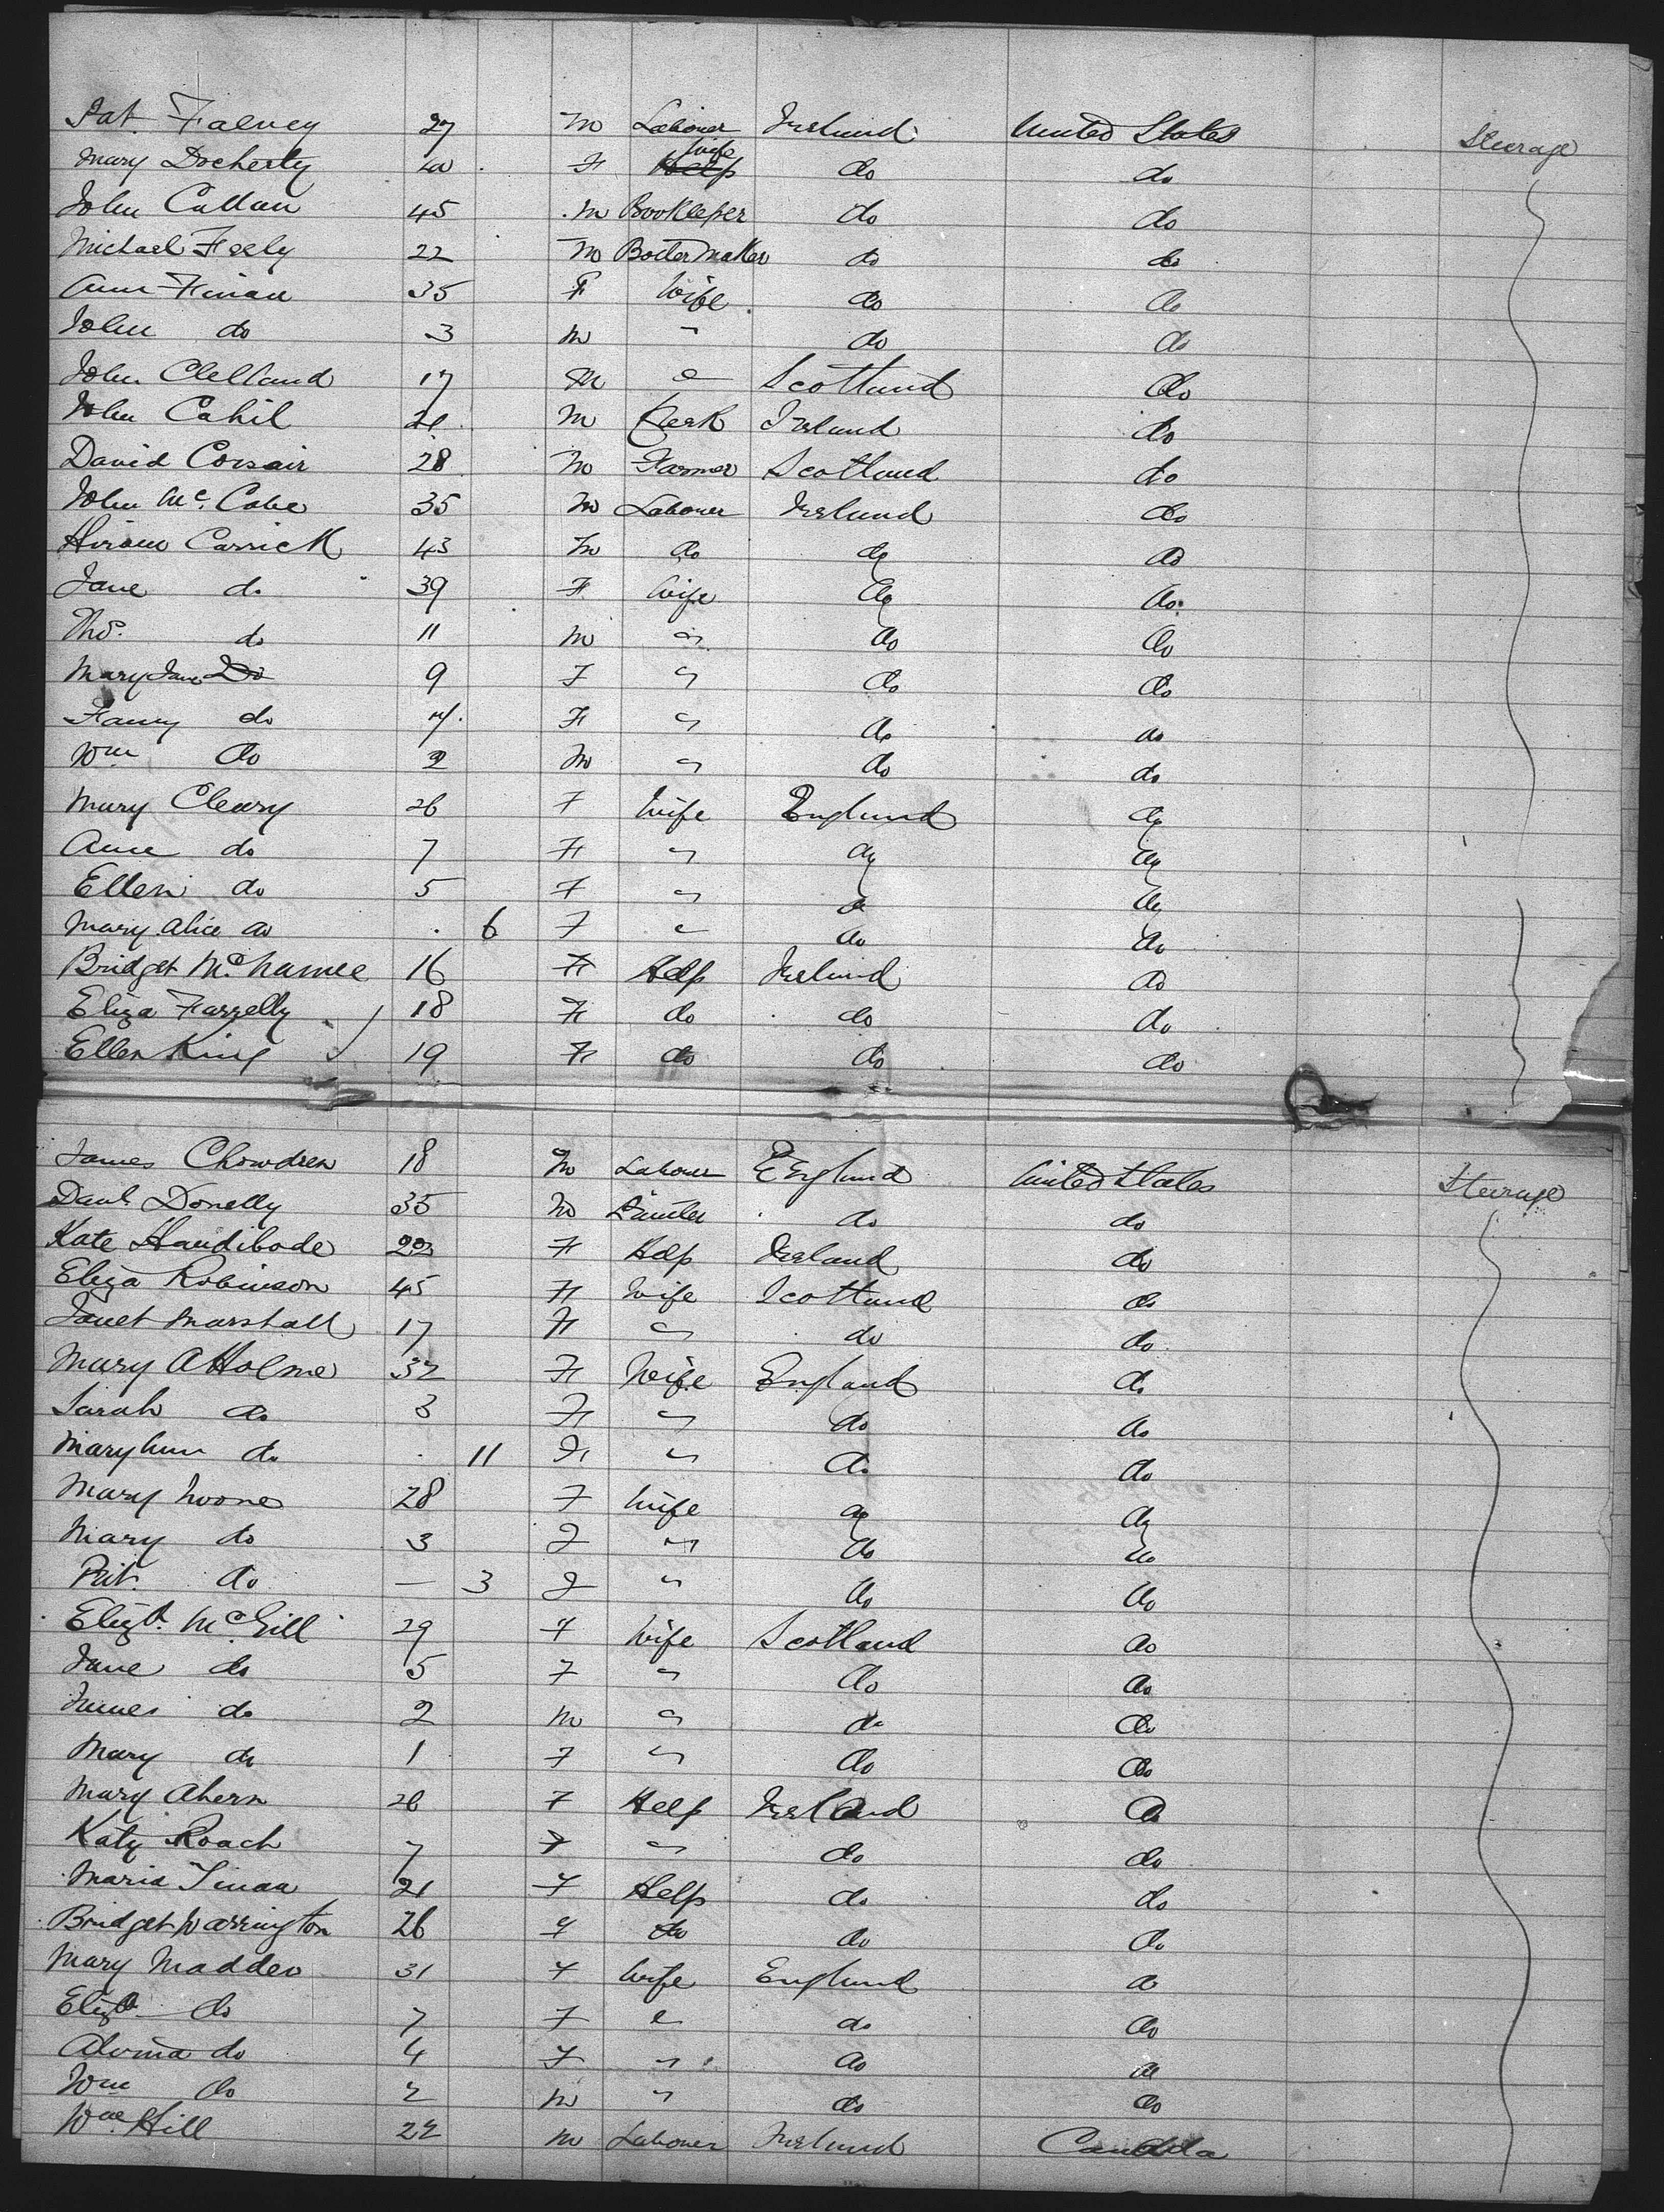 Pat. Falvey 27 M Laborer Ireland United States Steerage
Mary Docherty 40 F Wife Help do do
John Callan 45 M Bookkeeper do do
Michael Feely 22 M Boiler Maker do do
Ann Finan 35 F Wife do do
John do 3 M " do do
John Clelland 17 M " Scotland do
John Cahil 21 M Clerk Ireland do
David Corsair 28 M Farmer Scotland do
John Mc. Cabe 35 M Laborer Ireland do
Hiram Carrick 43 M do do do
Jane do 39 F Wife do do
Thos. do 11 M " do do
Mary Jane Do 9 F " do do
Fanny do 4 F " do do
Wm do 2 M " do do
Mary Cleary 26 F Wife England do
Anne do 7 F " do do
Ellen do 5 F " do do
Mary Alice do . 6 F " do do
Bridget Mc. Namee 16 F Help Ireland do
Eliza Farrelly 18 F do do do
Ellen King 19 F do do do
James Chowdren 18 M Laborer England United States Steerage
Danl Donelly 35 M do do
Kate Handibode 22 F Help Ireland do
Eliza Robinson 45 F Wife Scotland do
Janet Marshall 17 F " do do
Mary A Holme 32 F Wife England do
Sarah do 3 F " do do
Mary Ann do . 11 F " do do
Mary Noone 28 F Wife do do
Mary do 3 F " do do
Pat. do — 3 F " do do
Elizth. McGill 29 F Wife Scotland do
Jane do 5 F " do do
James do 2 M " do do
Mary do 1 F " do do
Mary Ahern 26 F Help Ireland do
Katy Roach 7 F " do do
Maria Finan 21 F Help do do
Bridget Warrington 26 F do do do
Mary Madden 31 F Wife England do
Elizth do 7 F " do do
Alvina do 4 F " do do
Wm do 2 M " do do
Wm. Hill 22 M Laborer Ireland Canada